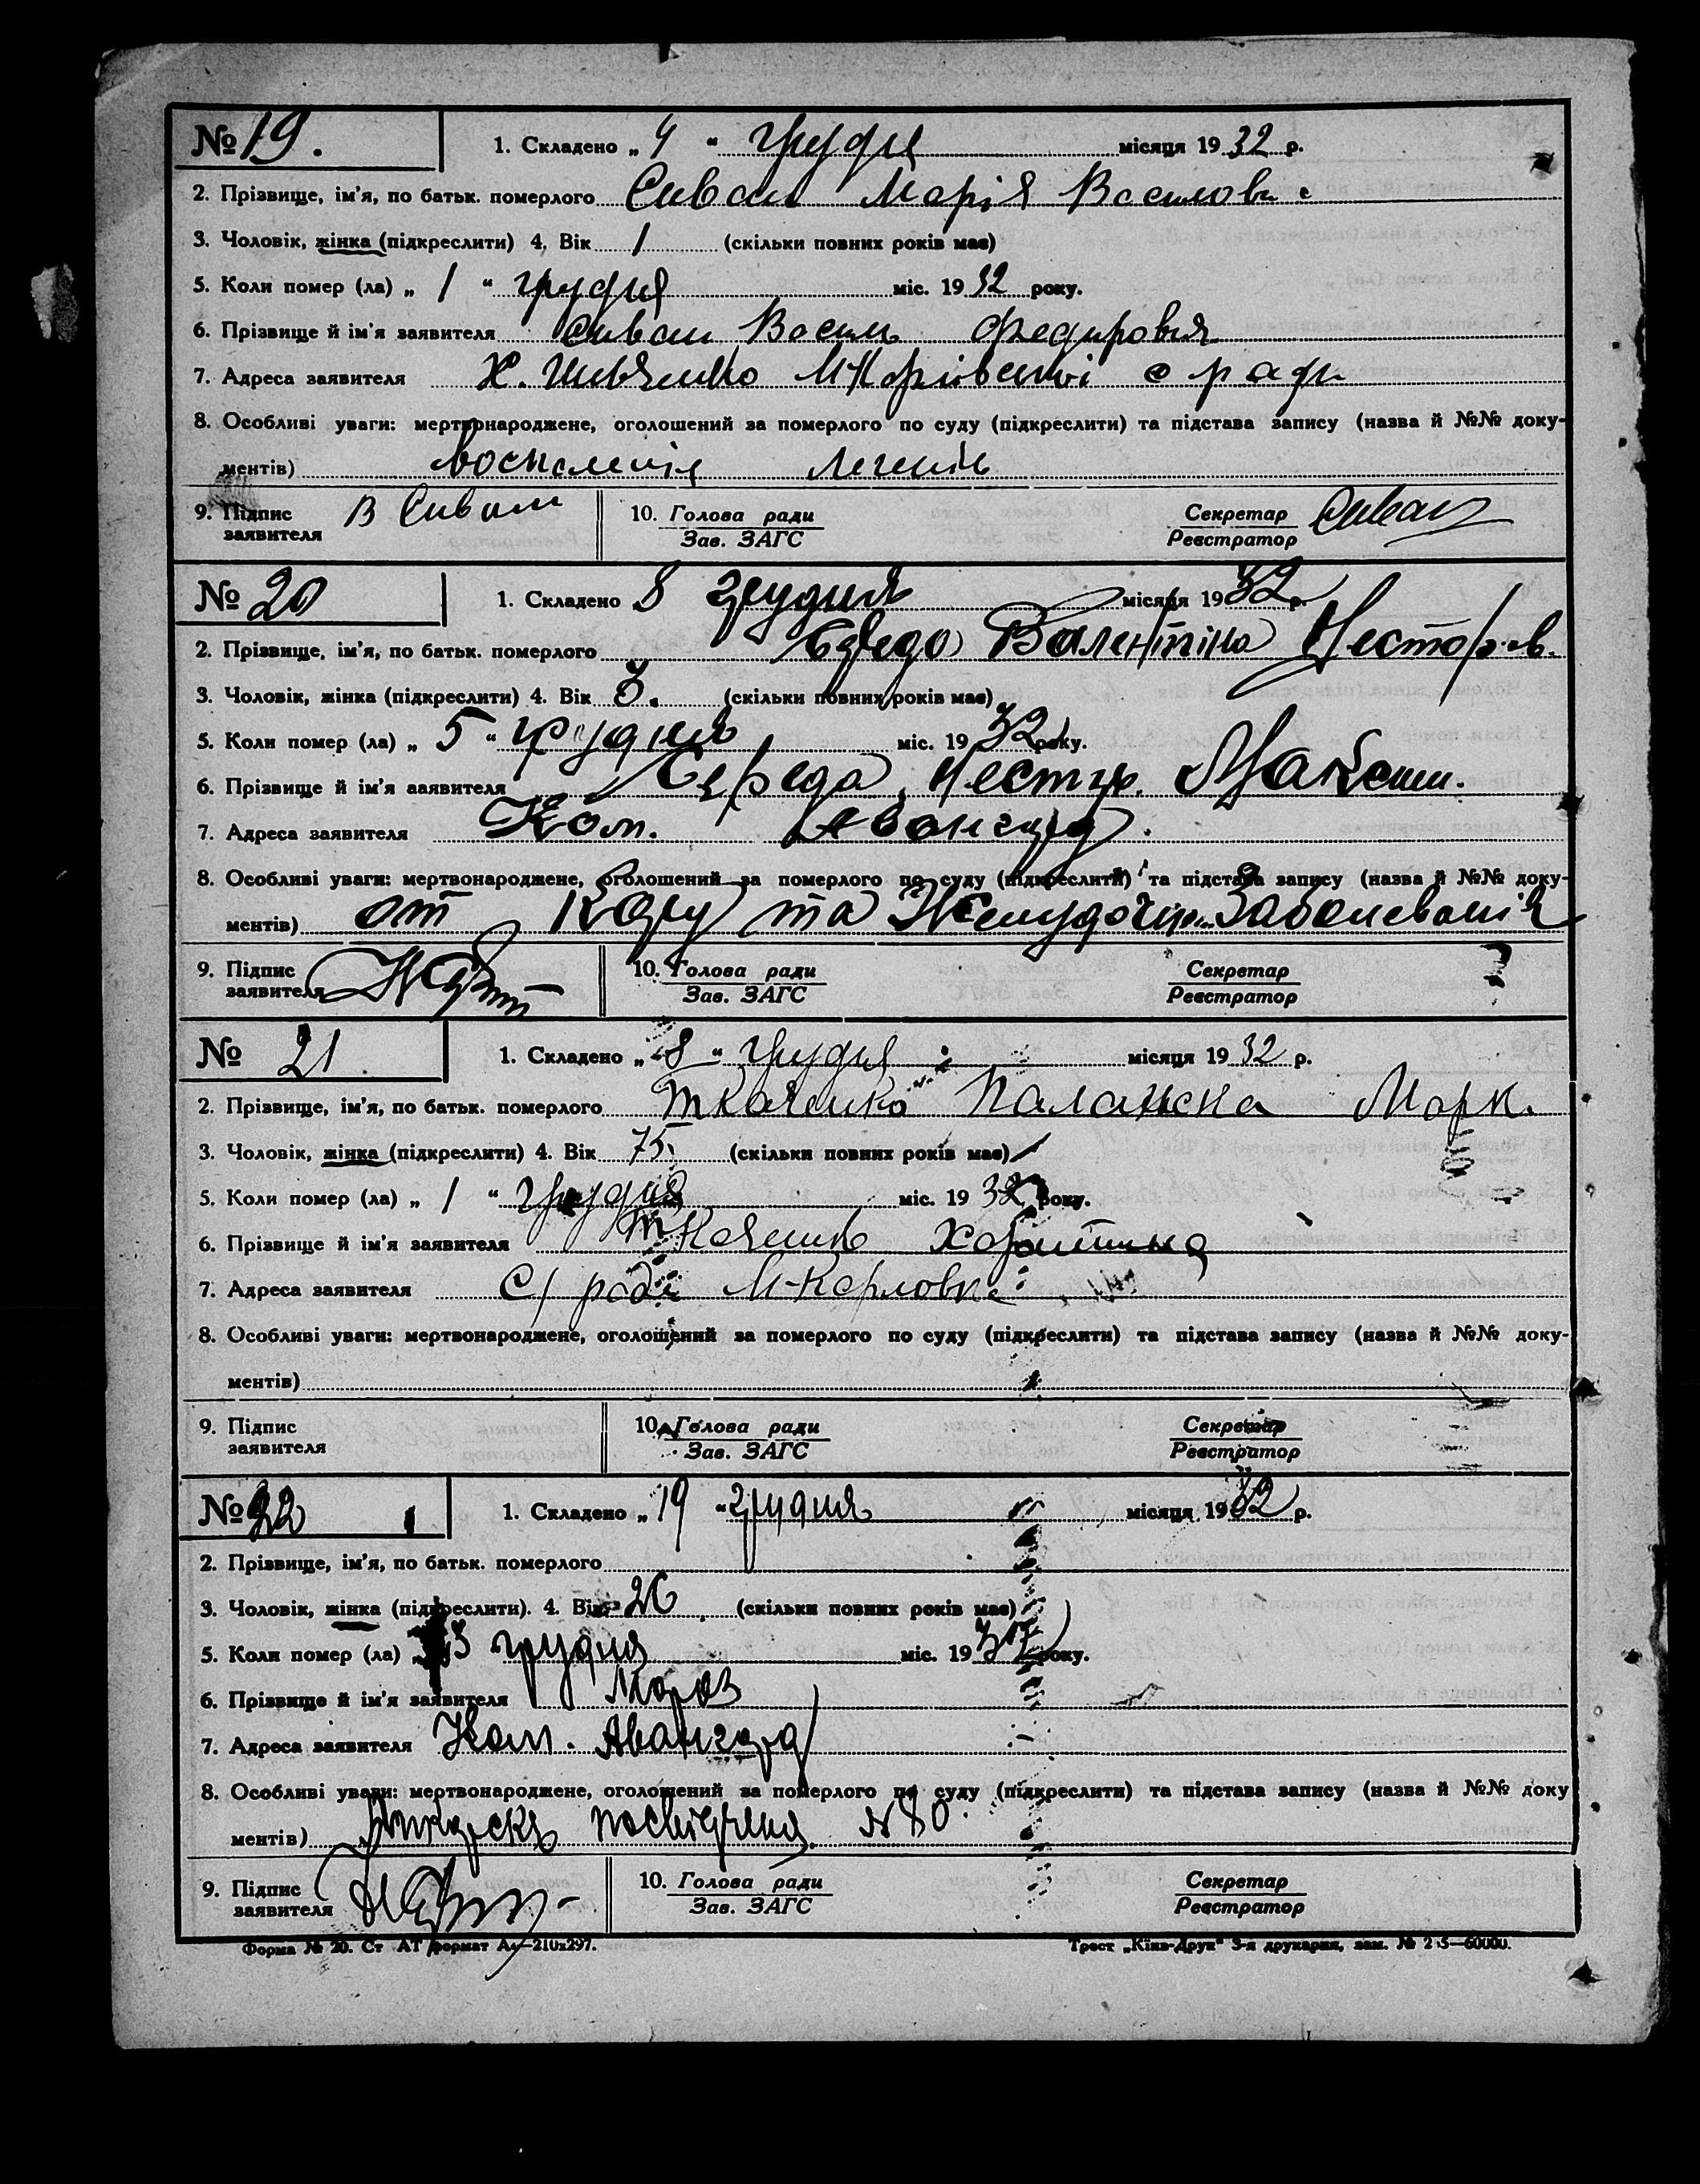 № 19. 1. Складено „ 4 “ грудня місяця 19 32 р.
2. Прізвище, ім'я, по батьк. померлого Сиваш Марія Василовн
3. Чоловік, жінка (підкреслити) 4. Вік 1 (скільки повних років має)
5. Коли помер (ла) „ 1 “ грудня міс. 19 32 року.
6. Прізвище й ім'я заявителя Сиваш Василь Федировия
7. Адреса заявителя Х. М-Карлівської с ради
8. Особливі уваги: мертвонароджене, оголошений за померлого по суду (підкреслити) та підстава запису (назва й №№ доку-
ментів) Воспаления легенів
9. Підпис заявителя В Сиваш 10. Голова ради Зав. ЗАГС Секретар Реєстратор Сиваш
№ 20 1. Складено 8 грудня місяця 19 32 р.
2. Прізвище, ім'я, по батьк. померлого Валентіна Нестор.в.
3. Чоловік, жінка (підкреслити) 4. Вік 3. (скільки повних років має)
5. Коли помер (ла) „ 5 “ грудня міс. 19 32 року.
6. Прізвище й ім'я заявителя Середа Нестір. Максим.
7. Адреса заявителя Ком. Авангард.
8. Особливі уваги: мертвонароджене, оголошений за померлого по суду (підкреслити) та підстава запису (назва й №№ доку-
ментів) от Кору та Желудочн. Заболеванія
9. Підпис заявителя 10. Голова ради Зав. ЗАГС Секретар Реєстратор
№ 21 1. Складено „ 8 “ грудня місяця 19 32 р.
2. Прізвище, ім'я, по батьк. померлого Ткаченко Палажка Марк.
3. Чоловік, жінка (підкреслити) 4. Вік 75 (скільки повних років має)
5. Коли помер (ла) „ 1 “ грудня міс. 19 32 року.
6. Прізвище й ім'я заявителя Ткаченко Харитина
7. Адреса заявителя С/ раді М-Карловк
8. Особливі уваги: мертвонароджене, оголошений за померлого по суду (підкреслити) та підстава запису (назва й №№ доку-
ментів)
9. Підпис заявителя 10. Голова ради Зав. ЗАГС Секретар Реєстратор
№ 22 1. Складено „ 19 “ грудня місяця 19 32 р.
2. Прізвище, ім'я, по батьк. померлого
3. Чоловік, жінка (підкреслити). 4. Вік 26 (скільки повних років має)
5. Коли помер (ла) грудня міс. 19 32 року.
6. Прізвище й ім'я заявителя Мороз
7. Адреса заявителя Ком. Авангард
8. Особливі уваги: мертвонароджене, оголошений за померлого по суду (підкреслити) та підстава запису (назва й №№ доку
ментів) Лікарске посвідченя №80
9. Підпис заявителя 10. Голова ради Зав. ЗАГС Секретар Реєстратор
Форма № 20. Ст АТ формат А4—210x297. Трест „Київ-Друк“ 3-я друкарня, зам. № —60000.